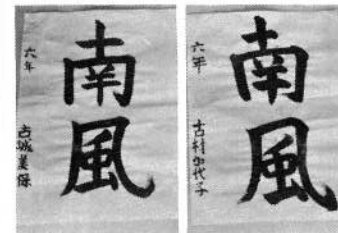 南風
六年
古城美保
南風
六年
古村加代子